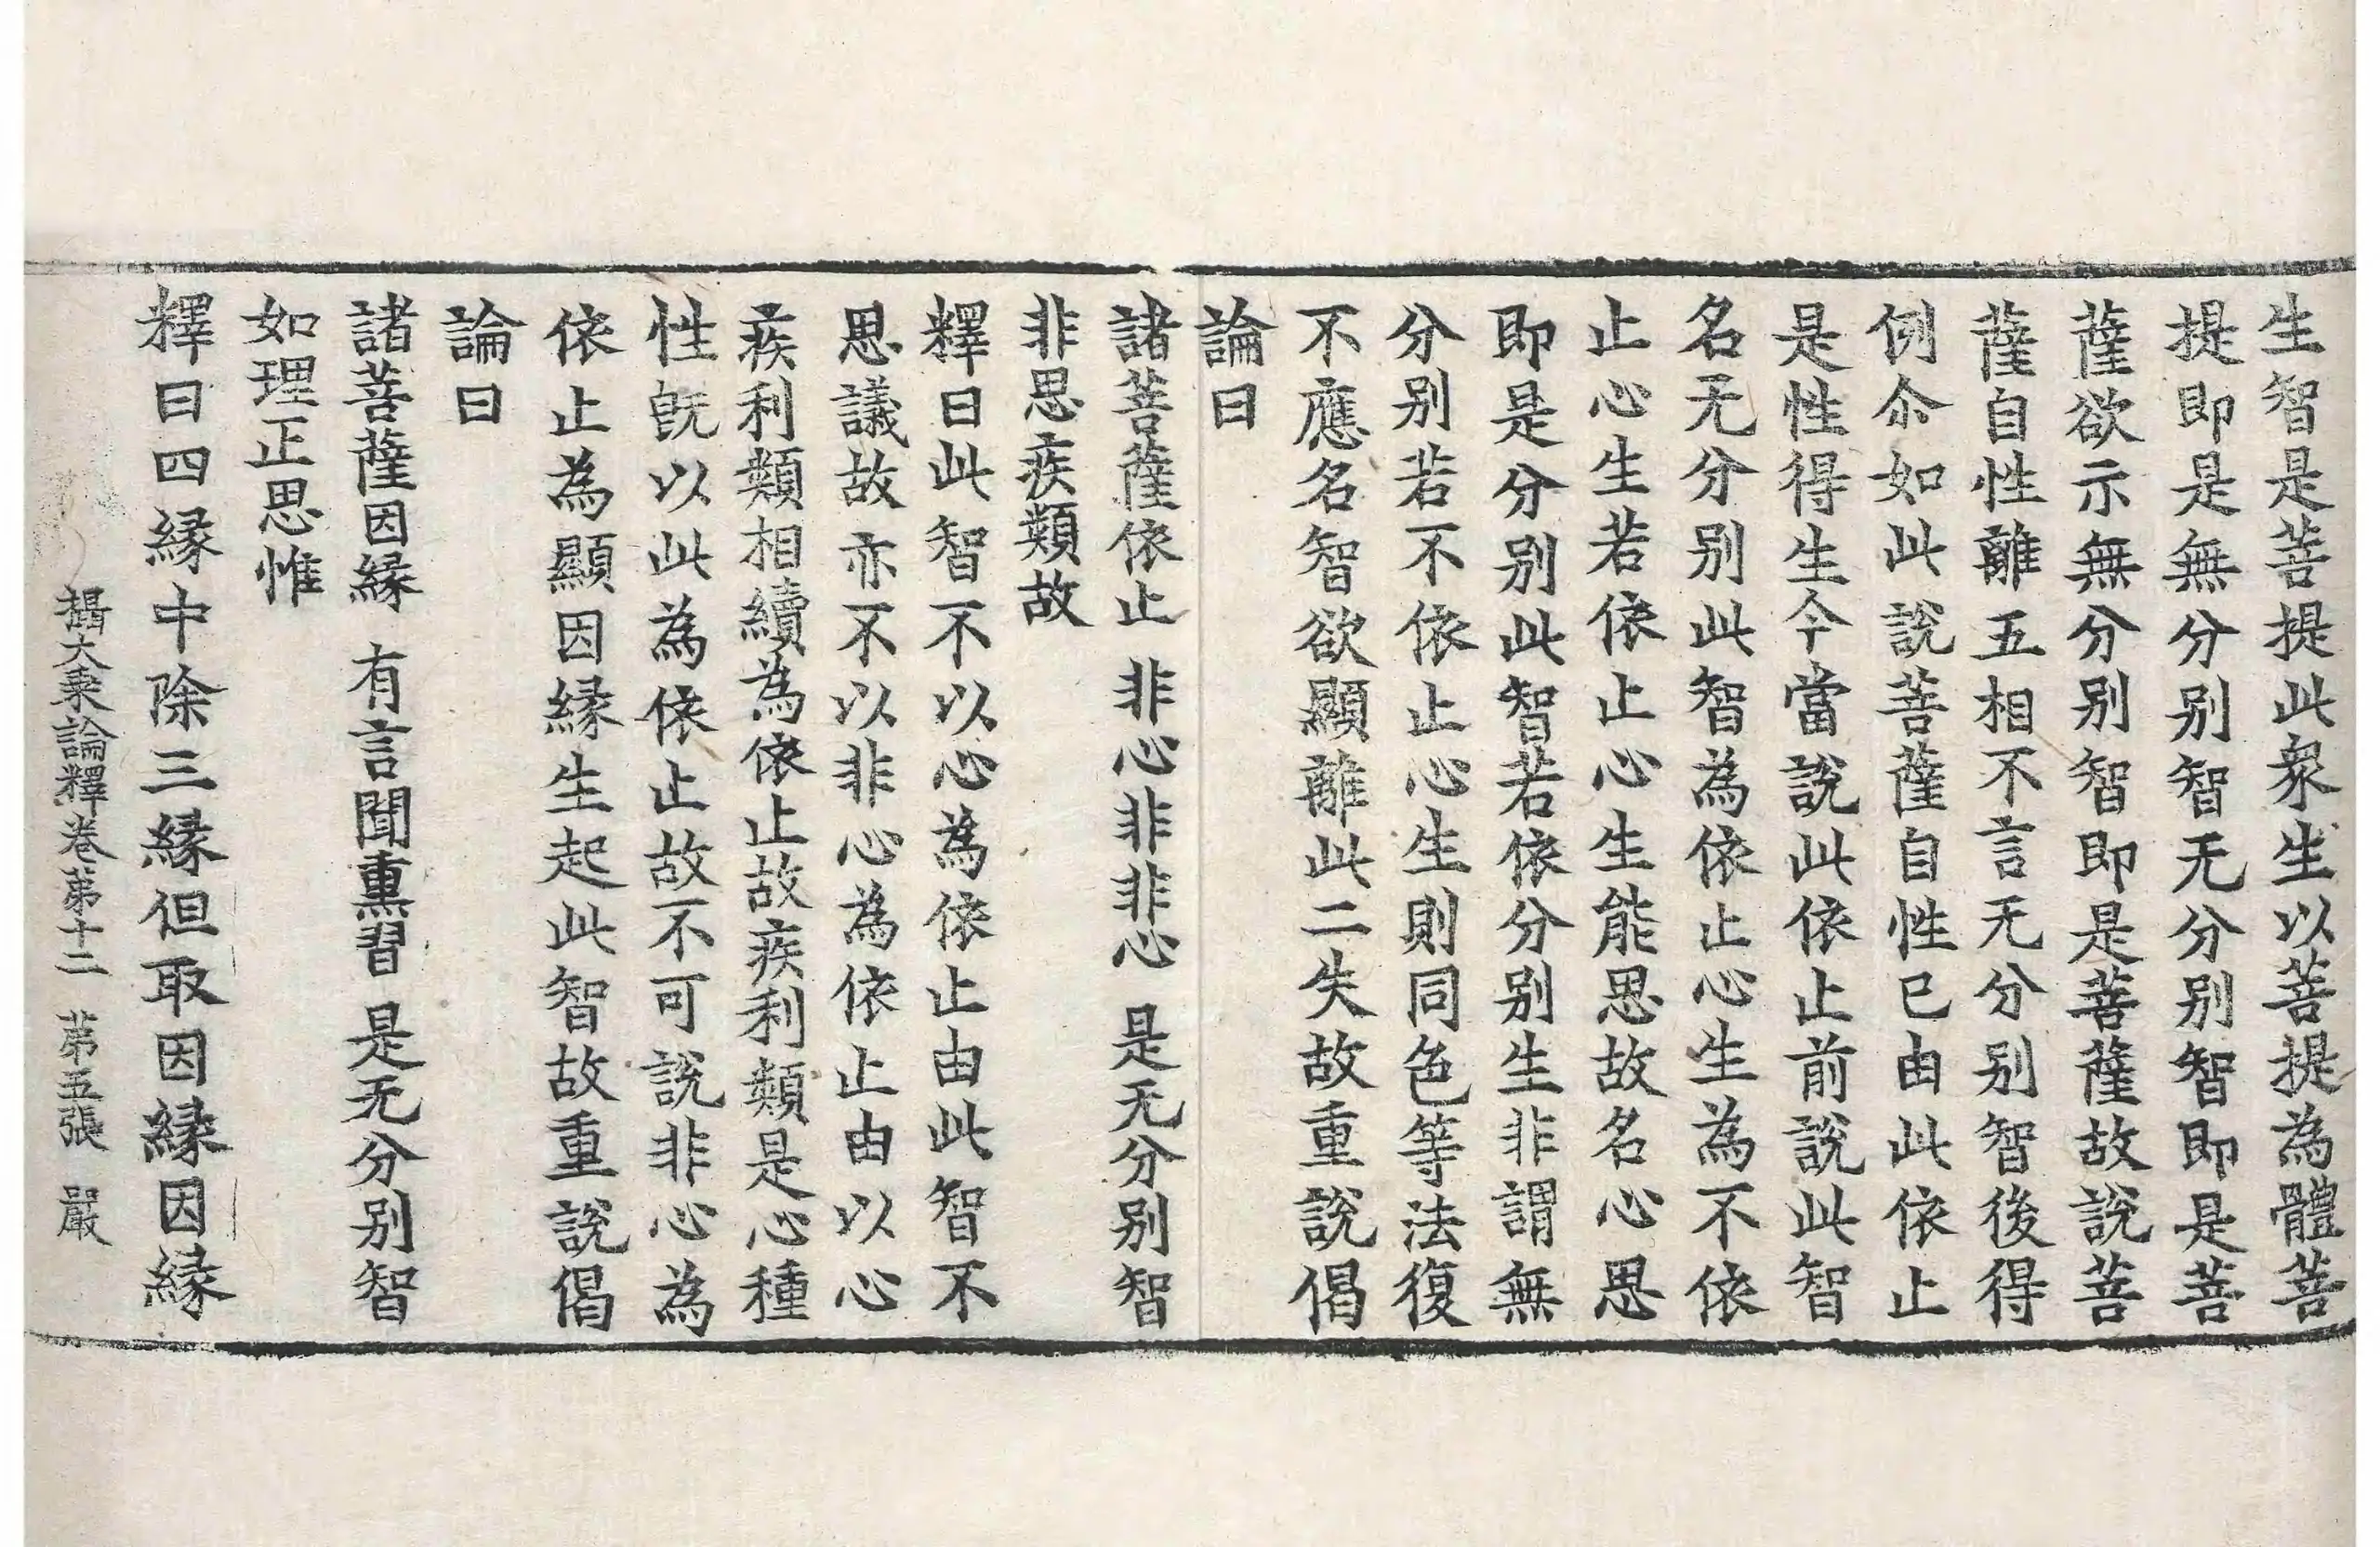 生智是菩提此衆生以菩提為體菩
提即是無分别智无分别智即是菩
薩欲示無分别智即是菩薩故說菩
薩自性離五相不言无分别智後得
例尒如此說菩薩自性已由此依止
是性得生今當說此依止前說此智
名无分别此智為依止心生為不依
止心生若依止心生能思故名心思
即是分别此智若依分别生非謂無
分别若不依止心生則同色等法復
不應名智欲顯離此二失故重說偈
論曰
諸菩薩依止 非心非非心 是无分别智
非思疾類故
釋曰此智不以心為依止由此智不
思議故亦不以非心為依止由以心
疾利類相續為依止故疾利類是心種
性旣以此為依止故不可說非心為
依止為顯因緣生起此智故重說偈
論曰
諸菩薩因緣 有言聞熏習 是无分别智
如理正思惟
釋曰四緣中除三緣但取因緣因緣
攝大乗論釋卷第十二 第五張 嚴